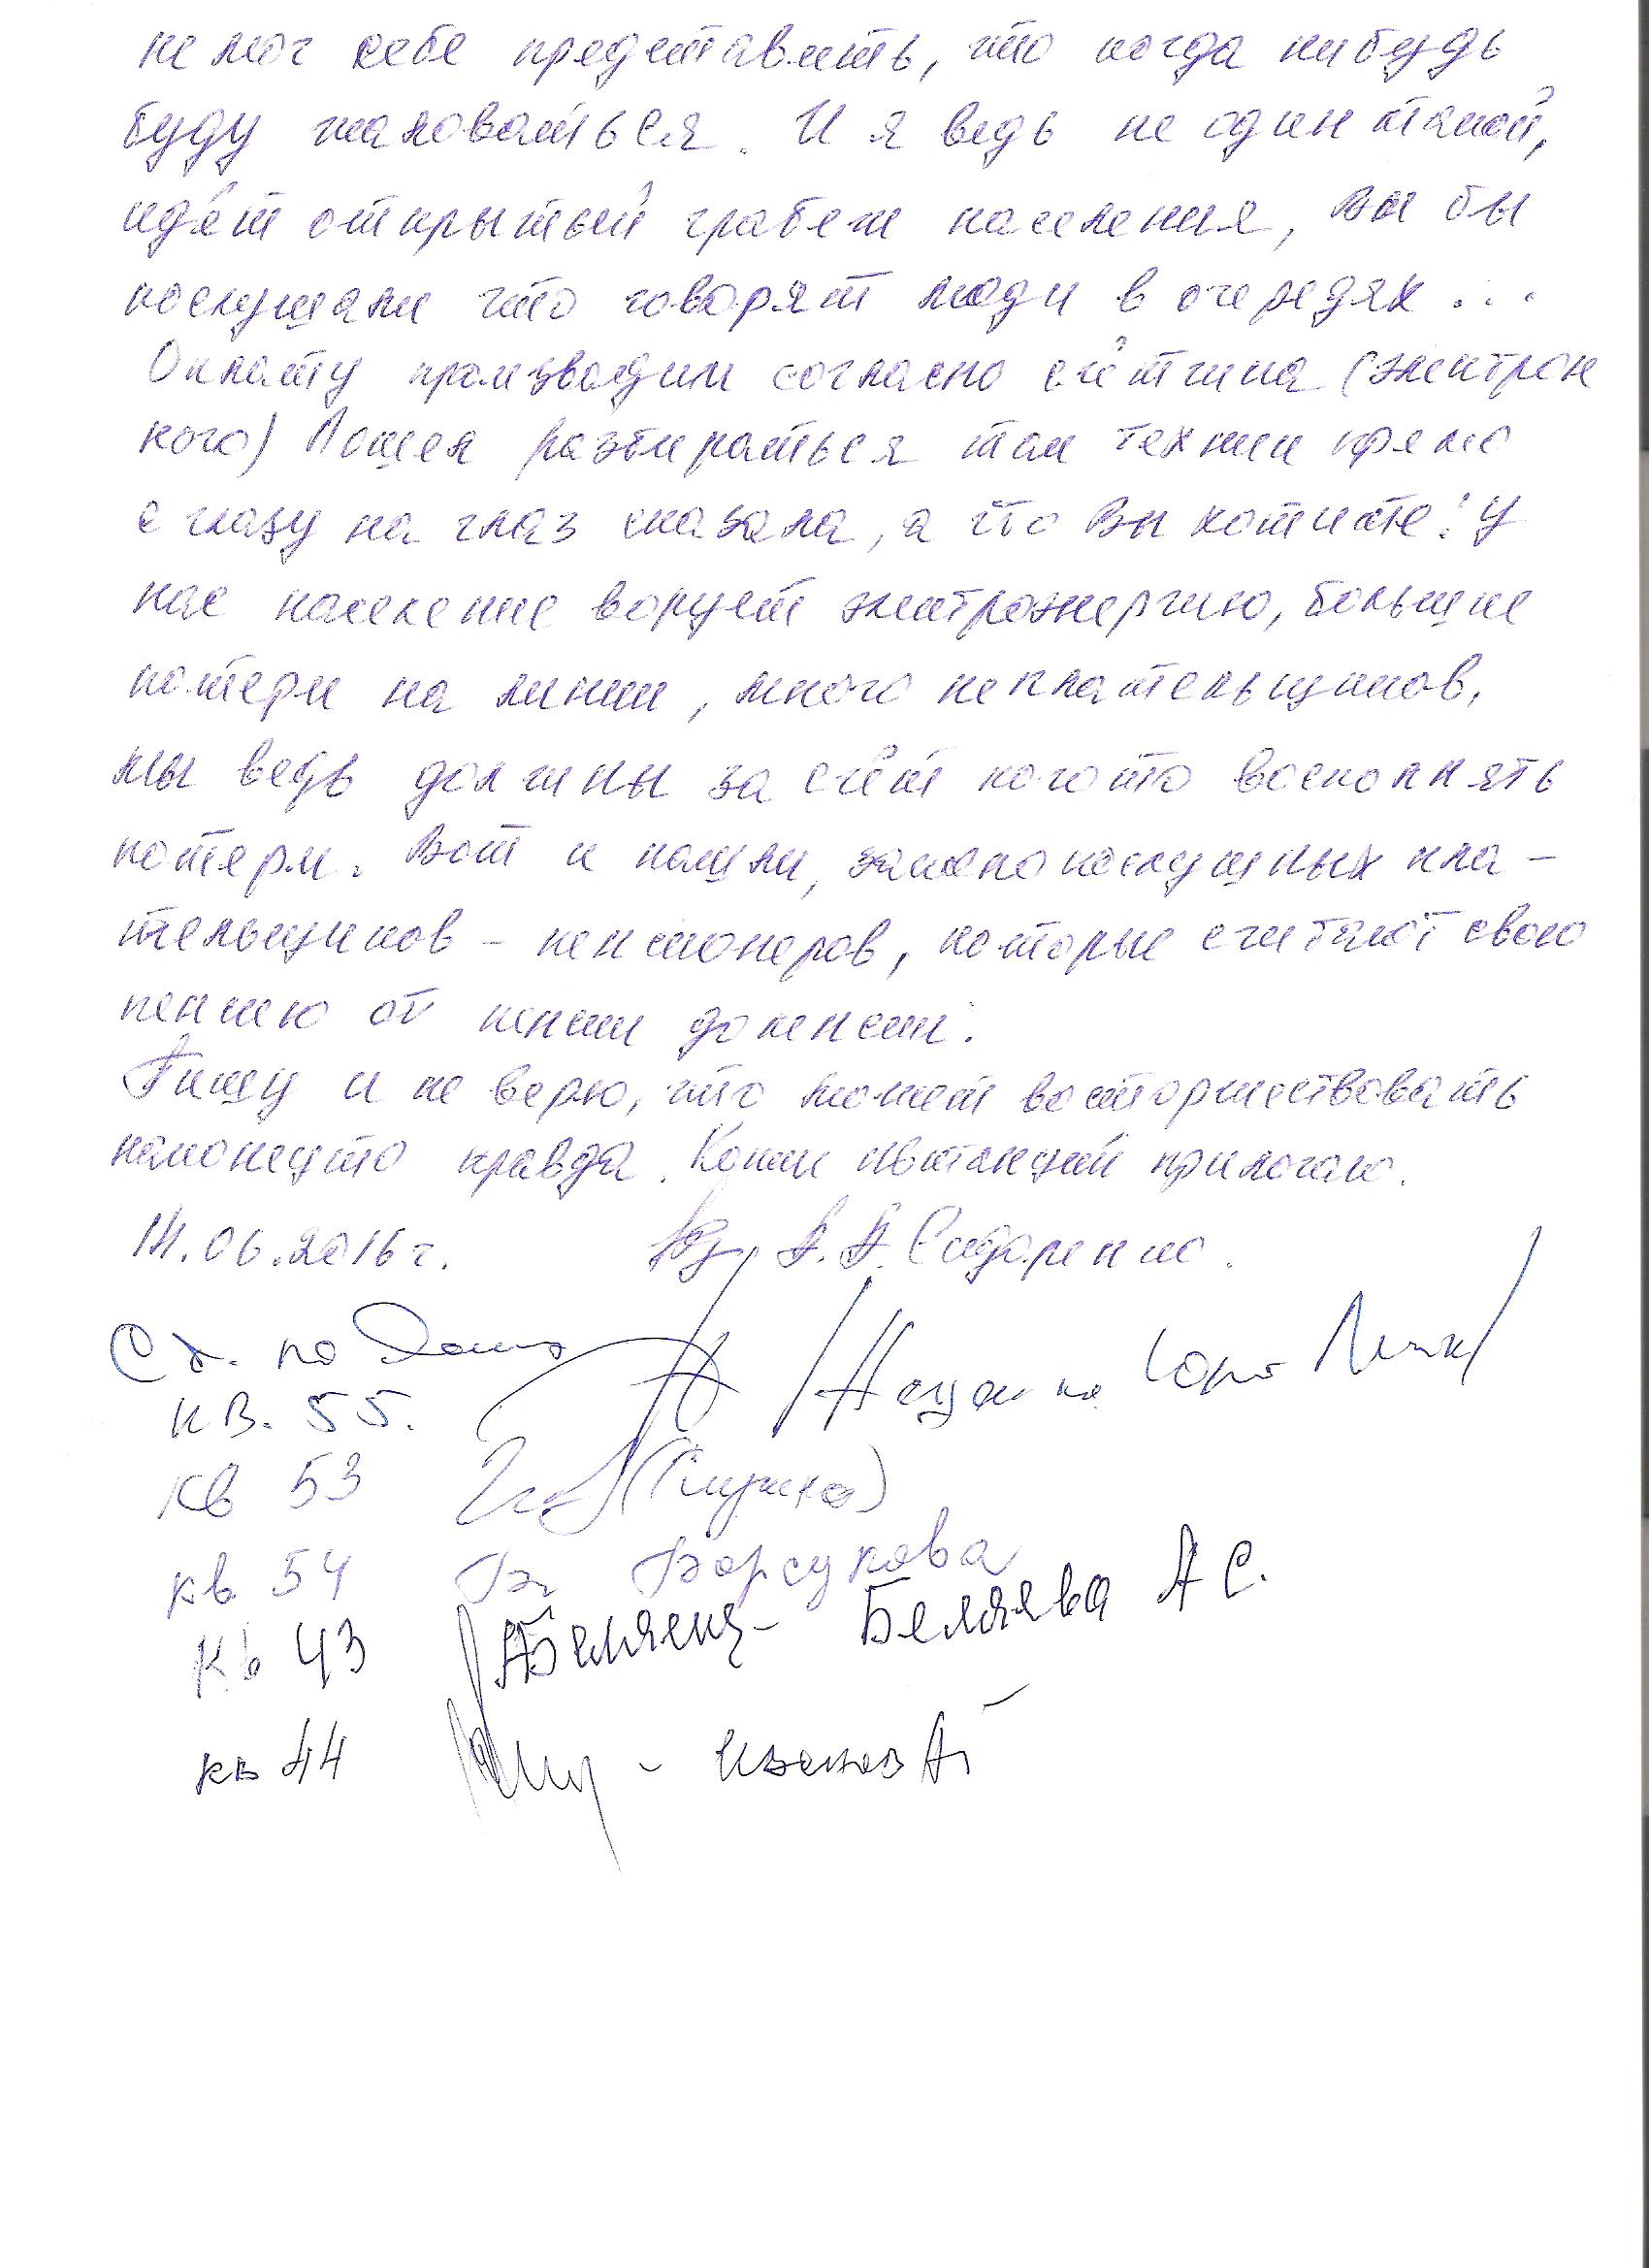 не мог себе представить, что когда нибудь
буду жаловаться. И я ведь не один такой,
идёт открытый грабеж населения, Вы бы
послушали что говорят люди в очередях...
Оплату производим согласно счётчика (электрон
ного) Пошел разбираться там техник прямо
с глазу на глаз сказала, а что Вы хотите! У
нас население ворует электроэнергию, большие
потери на линии, много неплательщиков,
мы ведь должны за счёт кого то восполнять
потери. Вот и нашли, законопослушных пла-
тельщиков - пенсионеров, которые считают свою
пенсию от пенсии до пенсии.
Пишу и не верю, что может восторжествовать
наконец то правда. Копии квитанций прилагаю.
14.06.2016 г. А.А. Сидоренко.
Ст. по дому
кв. 55.
кв 53
кв 54 Борсукова
кв 43 Беляева А С.
кв 44 Иванов А